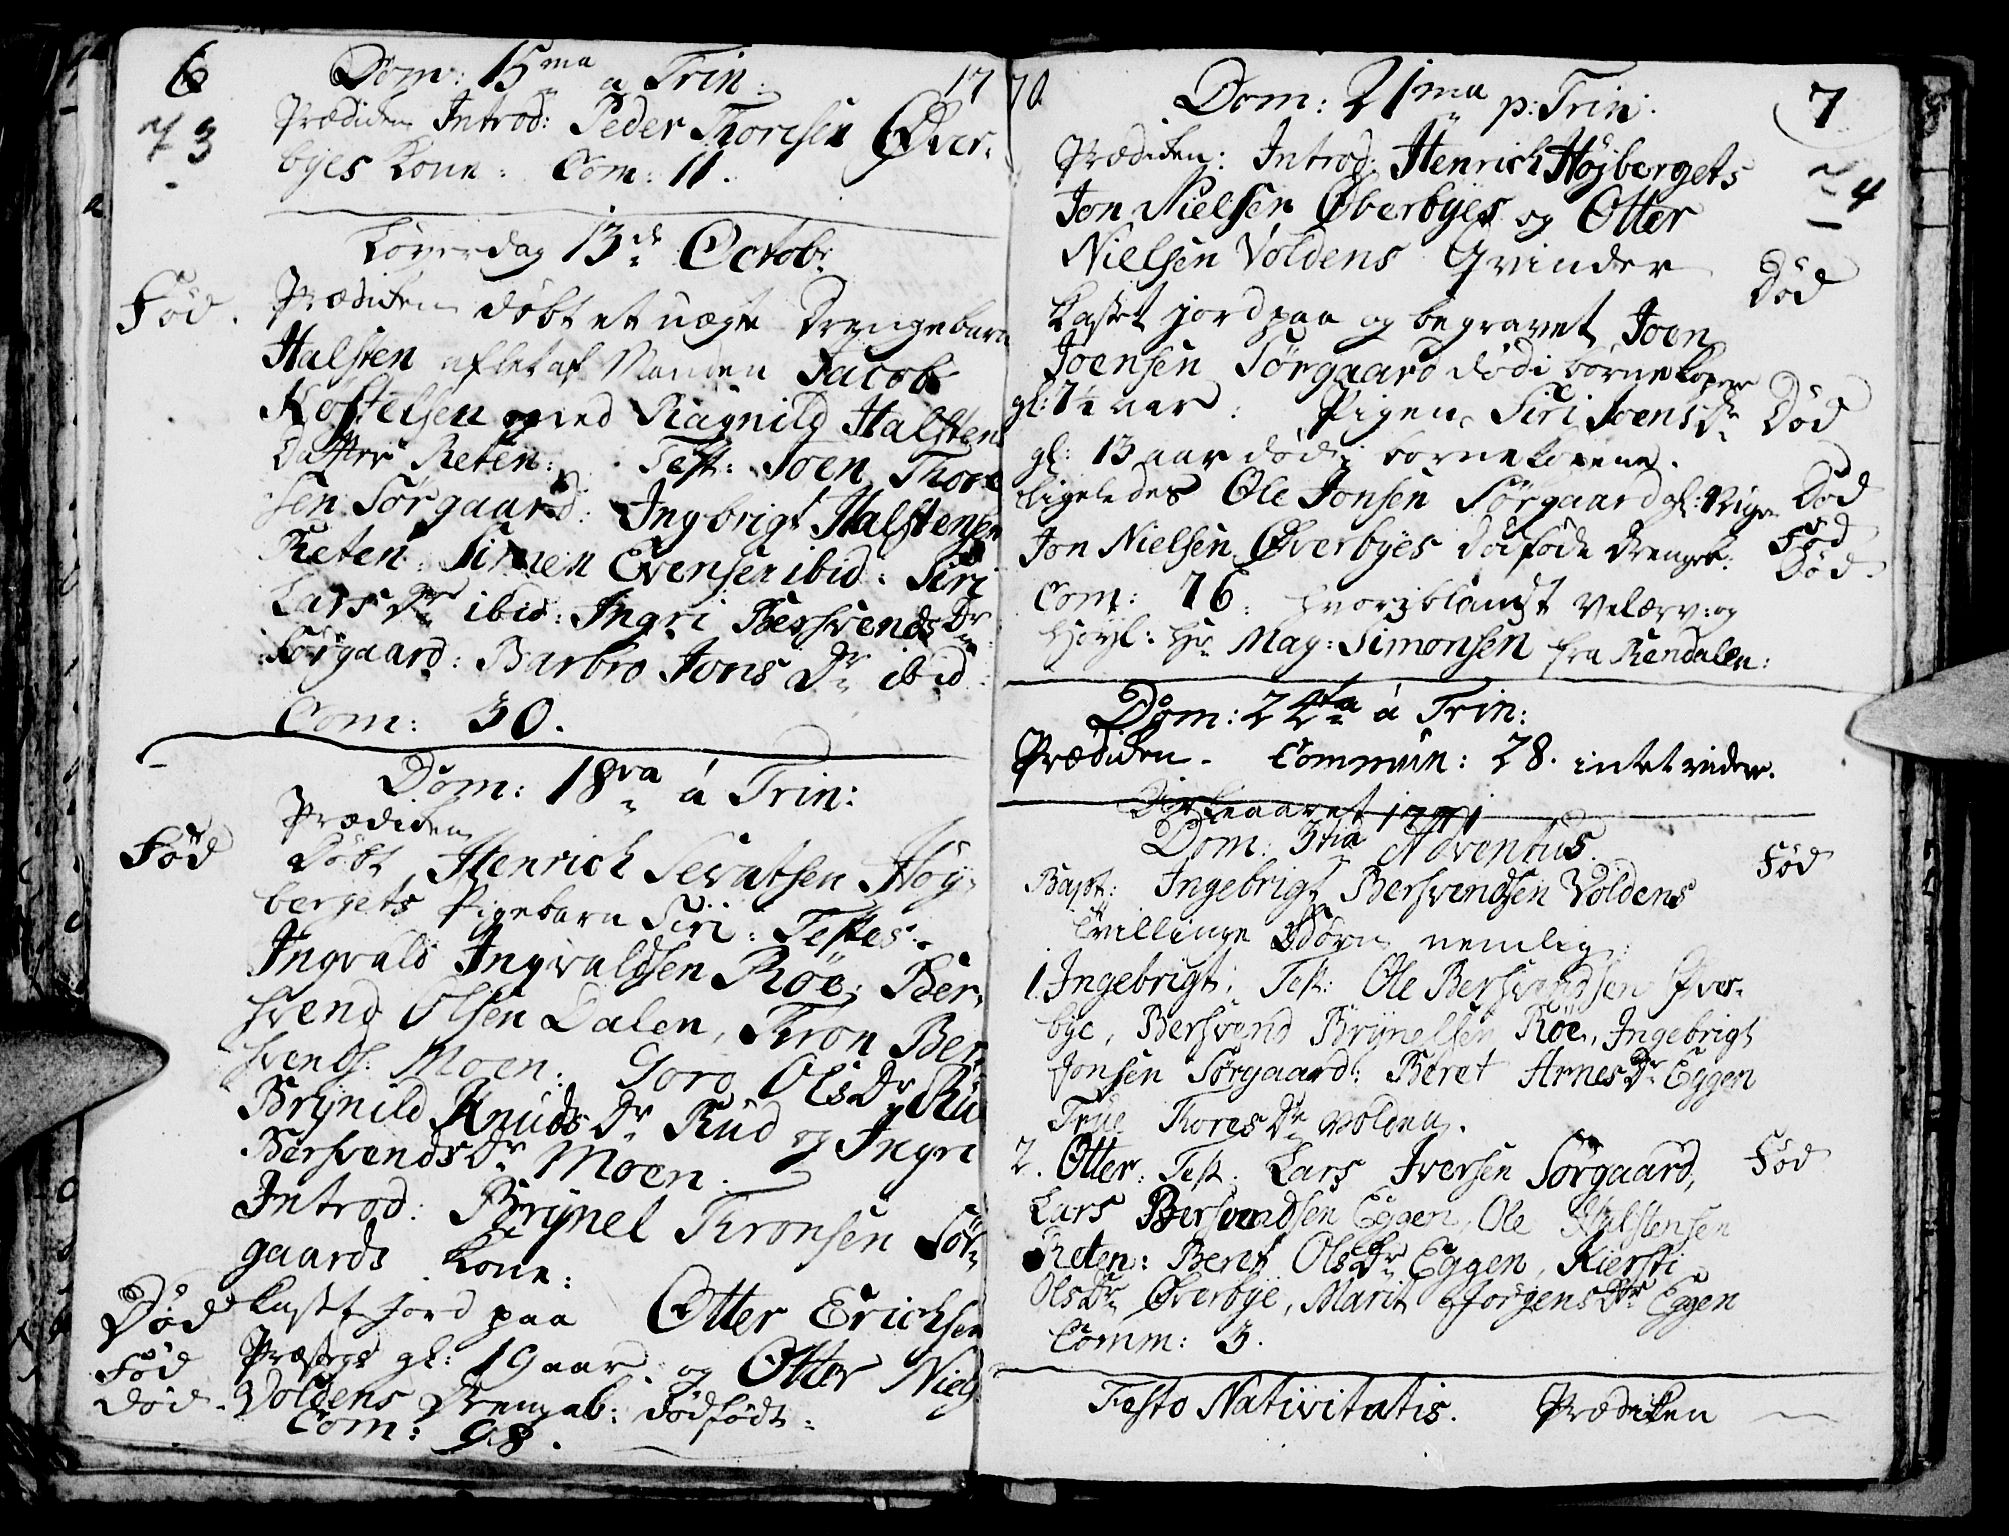 6
Dom: 15ma a Trin:
17
73
Prædiken Introd: Peder Thoresen Øver-
byes Kone: Com: 11.
Løverdag 13de Octobr:
Fød.
Prædiken døbt et uægte Drengebarn
Halsten aflet af Manden Jacob
med Ragnild Halstens
Datter Reten: Test: Joen Thore
sen Sørgaard: Ingbrigt Halstensen
Reten: Simen Evensen ibid: Siri
Lars Dr ibid: Ingri Bersvends Dr
Sørgaard: Barbro Jons Dr ibid:
Com: 30.
Dom: 18va á Trin:
Prædiken
Fød
Døbt Henrich Sevatsen Høy-
bergets Pigebarn Siri: Testes.
Ingvald Ingvaldsen Røe; Ber-
svend Olsen Dalen, Thron Ber-
svends: Moen: Goro Ols Dr Ru
Brynild Knuds Dr Rud og Ingri
Bersvends Dr Moen.
Introd: Brynel Thronsen Sør-
gaards Kone:
Død
Kastet Jord paa Otter Erichsen
Fød
Præstgd gl: 19 aar og Otter Niels
Død.
Voldens Drengeb: dødfødt:
Com: 98.
70
Dom: 21ma p: Trin:
7
4
Prædiken: Introd: Henrich Højbergets
Jon Nielsen Øverbyes og Otter
Nielsen Voldens Qvinder
Død
Kastet jord paa og begravet Joen
Joensen Sørgaard død i børnekoper
gl: 7½ aar: Pigen Siri Joens Dr
Død
gl: 13 aar død i børnekopene.
ligeledes Ole Jonsen Sørgaard gl:
Død
Fød
Jon Nielsen Øverbyes dødføde Drengeb:
Død.
Com: 76: hvoriblandt Velærv: og
Højl: Hr Mag: Simonsen fra Rendalen:
Dom: 22da á Trin:
Prædiken. Commun: 28. intet videre.
Kirkeaaret 1771
Dom: 3tia Adventus.
Fød
Bapt: Ingebrigt Bersvendsen Voldens
Tvillinge Børn nemlig:
1. Ingebrigt: Test: Ole Bersvendsen Øver-
bye, Bersvend Brynelsen Røe, Ingebrigt
Jonsen Sørgaard: Beret Arnes Dr Eggen
True Thores Dr Volden.
2. Otter: Test: Lars Iversen Sørgaard,
Fød
Lars Bersvendsen Eggen, Ole Halstensen
Reten: Beret Ols Dr Eggen, Kiersti
Ols Dr Øverbye, Marit Jørgens Dr Eggen
Comm: 3.
Festo Nativitatis. Prædiken